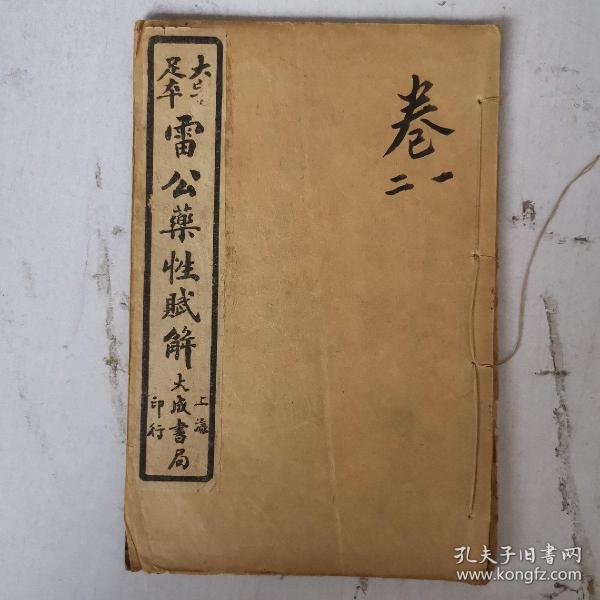 大字
足本
雷公藥性賦解
上海
大成書局
印行
卷
一
二
孔夫子旧书网
www.kongfz.com